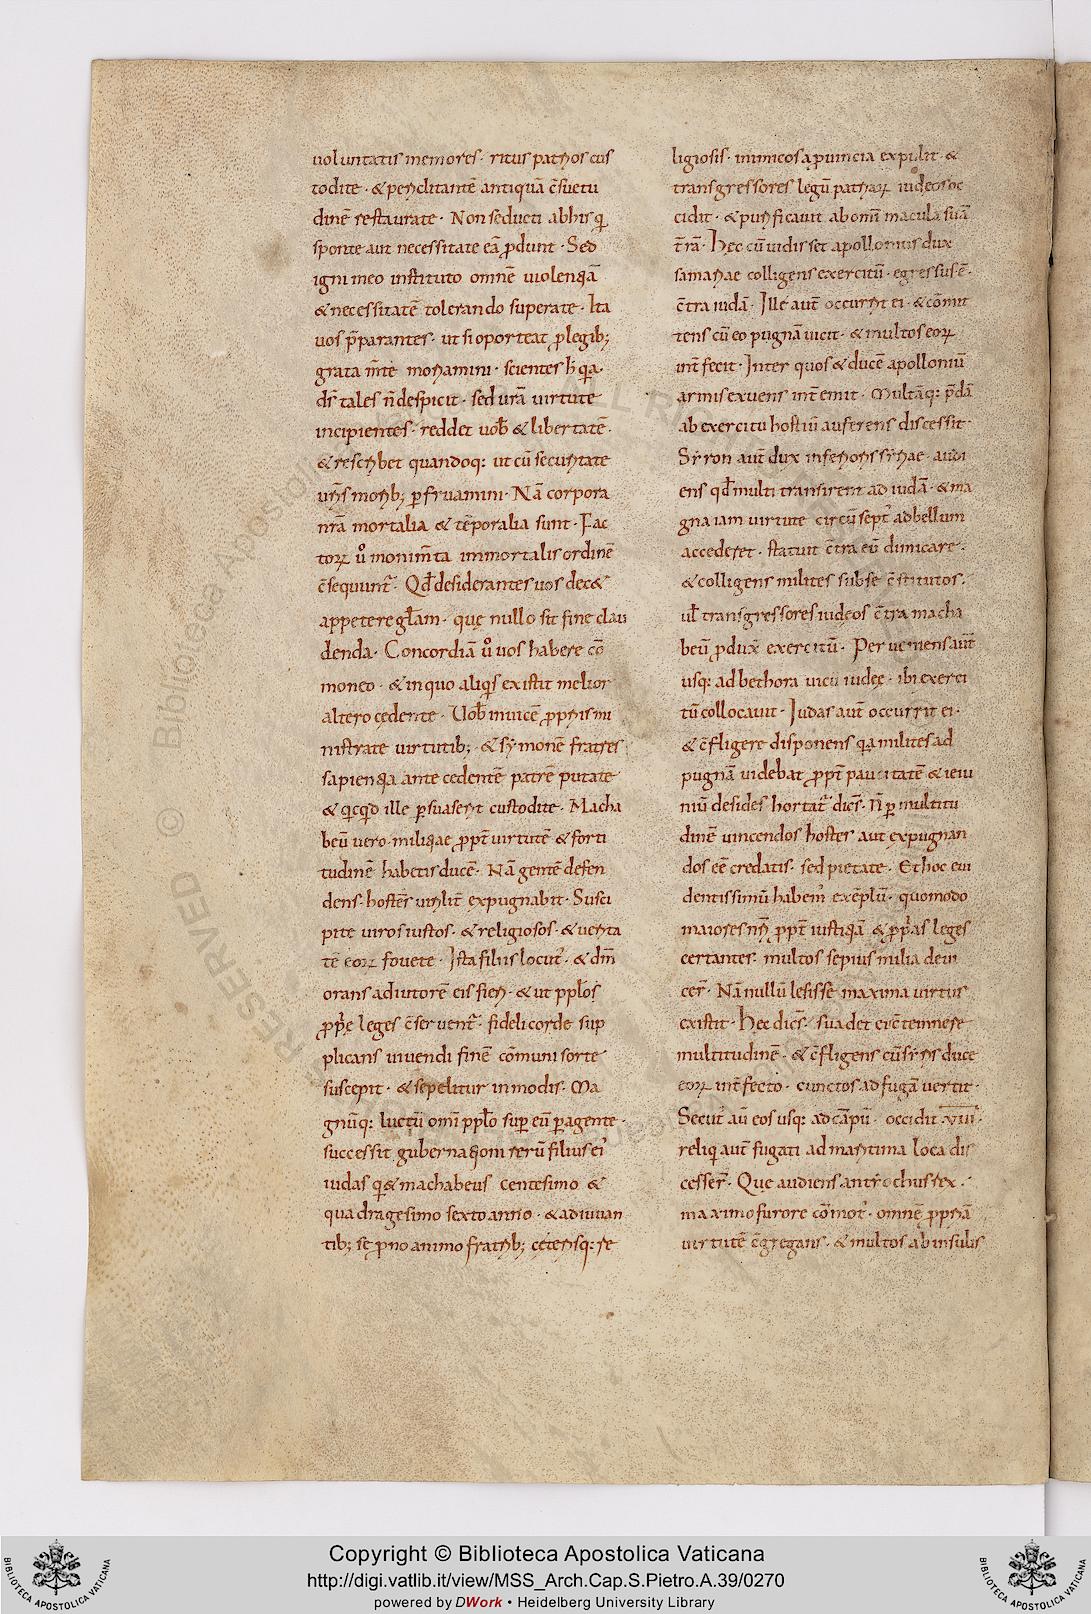 uoluntatis memores · ritus patrios cus
todite · & periclitantē antiquā c̄suetu
dinē restaurate · Non seducti ab his q̇
sponte aut necessitate eā p̄dunt · Sed
igni meo instituto omnē uiolentiā
& necessitatē tolerando superate · Ita
uos p̄parantes · ut si oporteat p legib;
grata m̄te moriamini · scientes h̄ qa
dr̄ tales n̄ despicit · sed urā uirtutē
incipientes · reddet uob̄ & libertatē ·
& rescribet quandoq: ut cū securitate
ur̄is morib; pfruamini · Nā corpora
nrā mortalia & tēporalia sunt · Fac
toꝝ u̇ monim̄ta immortalis ordinē
c̄sequunt̄ · Qd̄ desiderantes uos dec&
appetere gl̄am · quę nullo sit fine clau
denda · Concordiā u̇ uos habere cō
moneo · & in quo aliq̇s existit melior
altero cędente · Uob̄ inuicē pp̄riis mi
nistrate uirtutib; · & sẏmonē fratres
sapientia antecedentē patrē putate
& qcqd ille psuaserit custodite · Macha
beū uero · militiae pp̄t uirtutē & forti
tudinē habetis ducē · Nā gentē defen
dens · hostēr uirilit̄ expugnabit · Susci
pite uiros iustos · & religiosos · & uerita
tē eoꝝ fouete · Ista filiis locut̄ · & dn̄m
orans adiutorē eis fieri · & ut ppl̄os
pp̄rię leges c̄seruent̄ · fideli corde sup
plicans uiuendi finē cōmuni sorte
suscepit · & sepelitur in modis · Ma
gnūq: luctū omī ppl̄o sup eū pagente ·
successit gubernationi rerū filius ei'
iudas q & machabeus centesimo &
quadragesimo sexto anno · & adiuuan
tib; se p̄no animo fratrib; cęterisq: re
ligiosis · inimicos a puincia expulit · &
transgressores legū patriaꝝ iudeos oc
cidit · & purificauit ab omī macula suā
t̄rā · Hec cū uidisset apollonius dux
samariae colligens exercitū · egressus ē ·
c̄tra iudā · Ille aut̄ occurrit ei · & cōmit
tens cū eo pugnā uicit · & multos eoꝝ
int̄fecit · Inter quos & ducē apolloniū
armis exuens int̄emit · Multāq: p̄dā
ab exercitu hostiū auferens discessit ·
Sẏron aut̄ dux inferioris sẏriae · audi
ens qd̄ multi transirent ad iudā · & ma
gna iam uirtute circūsept' ad bellum
accederet · statuit c̄tra eū dimicare ·
& colligens milites sub se c̄stitutos ·
ul̄ transgressores iudeos c̄tra macha
beū pdux̄ exercitū · Perueniens aut̄
usq: ad bethora uicū iudeę · ibi exerci
tū collocauit · Iudas aut̄ occurrit ei ·
& c̄fligere disponens qa milites ad
pugnā uidebat pp̄t paucitatē & ieiu
niū desides hortat̄ dicēs · n̄ p multitu
dinē uincendos hostes aut expugnan
dos eē credatis · sed pietate · Et hoc eui
dentissimū habem' exēplū · quomodo
maiores nr̄i pp̄t iustitiā & pp̄rias leges
certantes · multos sepius milia deui
cer̄ · Nā nullū lesisse maxima uirtus
existit · Hęc dicēs · suadet eis c̄temnere
multitudinē · & c̄fligens cū sẏriis duce
eoꝝ int̄fecto · cunctos ad fugā uertit ·
Secut' aū eos usq: ad cāpū · occidit · VIII ·
reliqi aut̄ fugati ad maritima loca dis
cesser̄ · Quę audiens antiochus rex ·
maximo furore cōmot' · omnē pp̄riā
uirtutē c̄gregans · & multos ab insulis
RESERVED © Biblioteca Apostolica Vaticana
ALL RIGHTS
Copyright © Biblioteca Apostolica Vaticana
http://digi.vatlib.it/view/MSS_Arch.Cap.S.Pietro.A.39/0270
powered by DWork • Heidelberg University Library
BIBLIOTECA APOSTOLICA VATICANA
BIBLIOTECA APOSTOLICA VATICANA